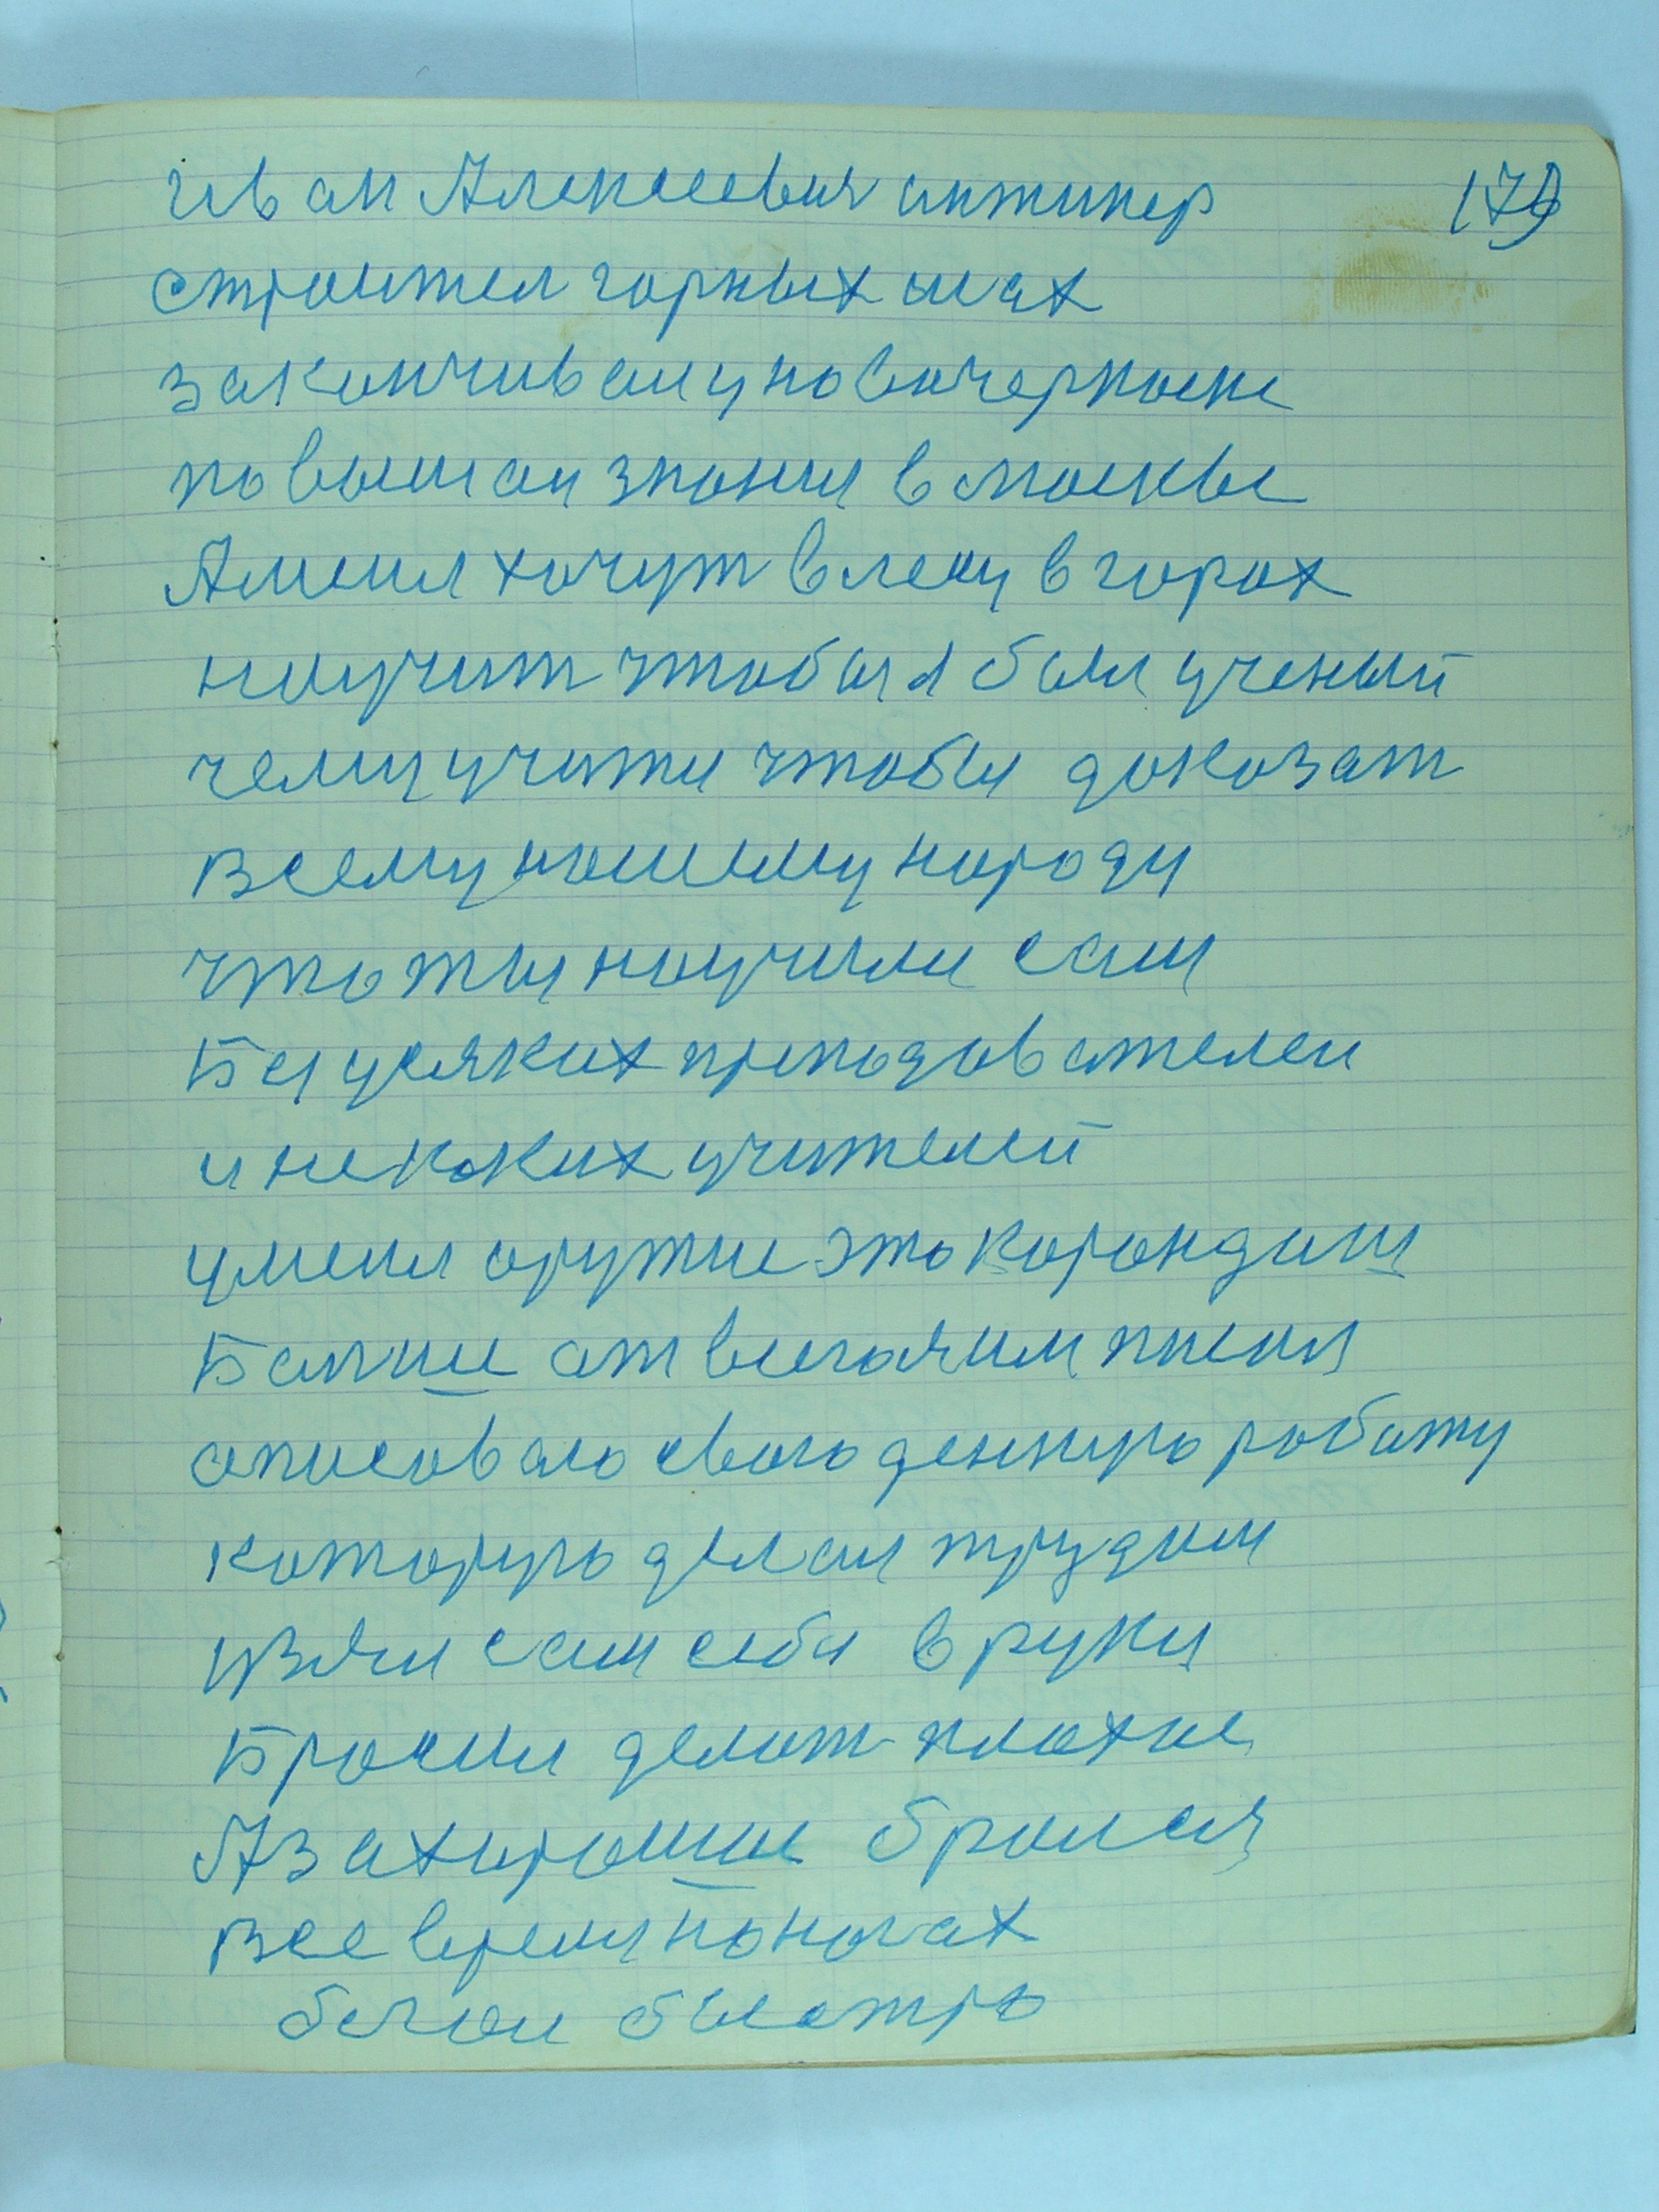 Иван Алексеевич инжинер 179
строител горных шах
закончивал у новочеркаске
повышал знания в москве
А меня хочут в лесу в горах
научит чтобы я был ученый
чему учити чтобы доказат
всему нашему народу
что ты научили сам
Без усяких преподавателеи
и не каких учителей
у меня оружие это корондаш
Балше ат вигаячим писял
описоваю свою денную работу
которую делал трудом
изяли сам себя в руки
Бросил делат плохое
А за хорошое бралея
все время по ногах
бегом быстро